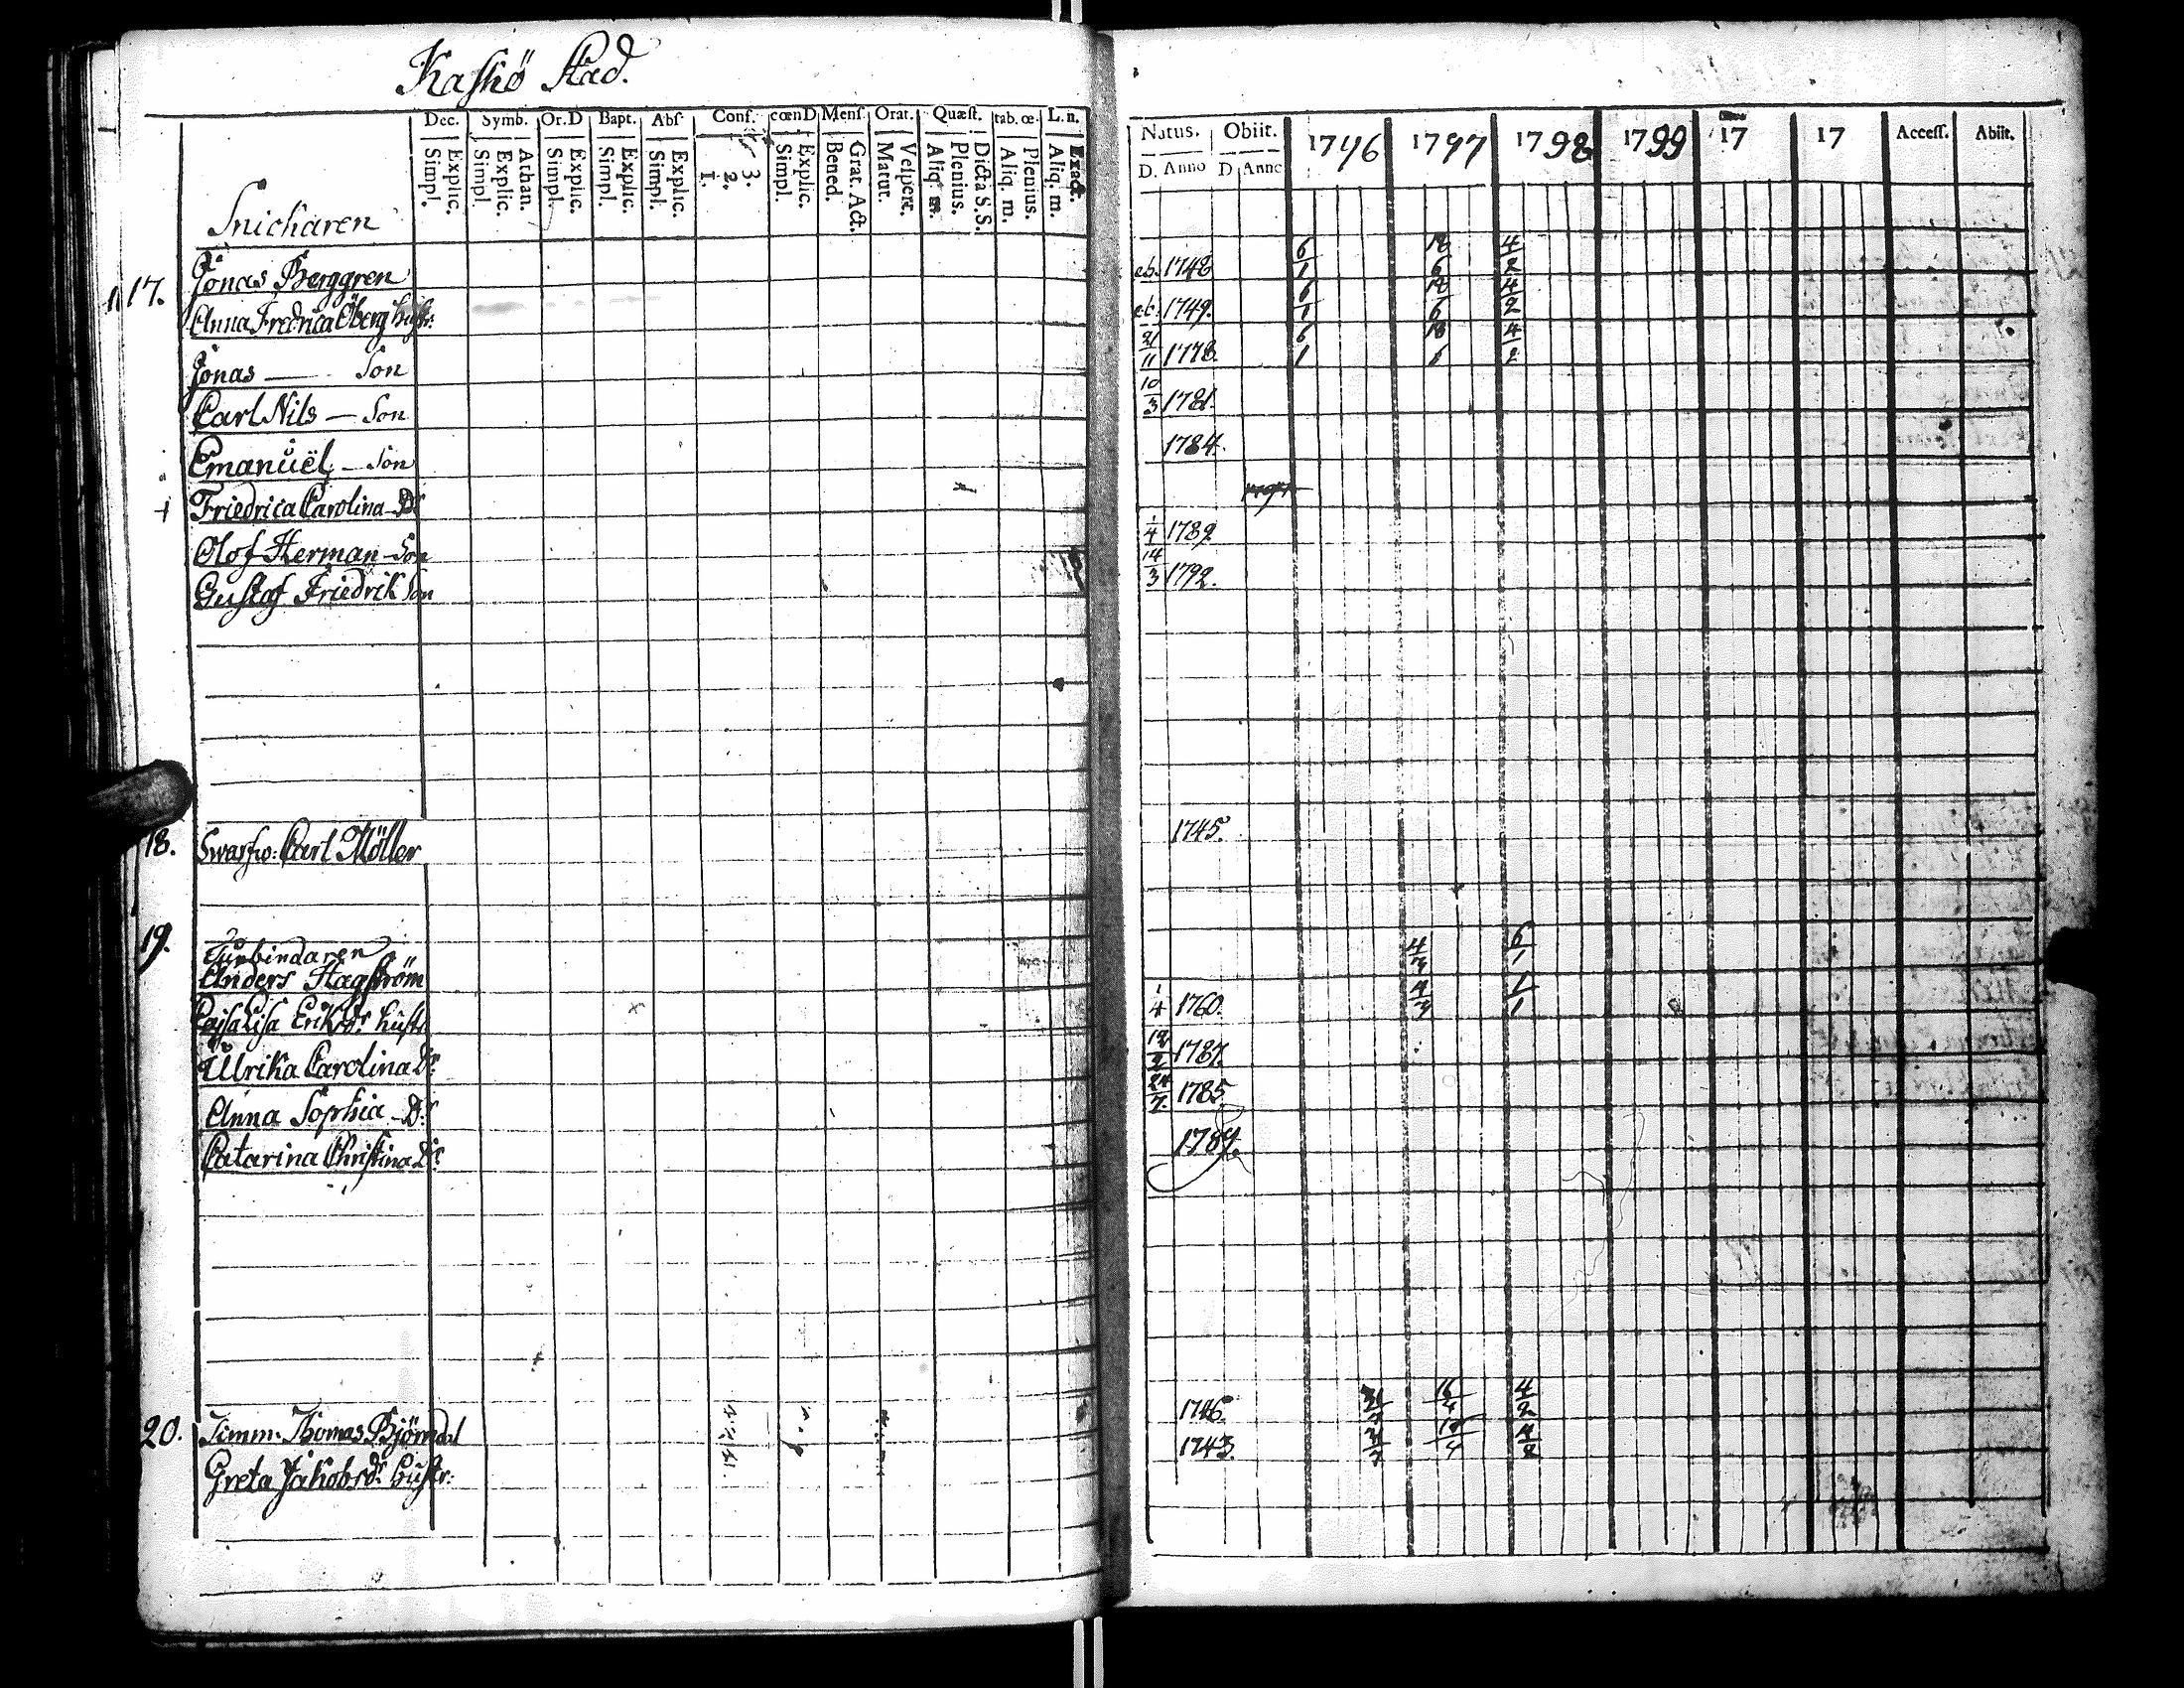 Kaskö Stad.
Dec. Symb. Or.D Bapt. Abs. Conf. cœnD Mens. Orat. Quæst. tab. œ. L. n.
Explic. Simpl. Athan. Explic. Simpl. Explic. Simpl. Explic. Simpl. Explic. Simpl. 3. 2. 1. Explic. Simpl. Grat. Act. Bened. Vespert. Matut. Dicta S.S. Plenius. Aliq. m. Plenius. Aliq. m. Exact. Aliq. m.
Natus. Obiit. 1796 1797 1798 1799 17 17 Access. Abiit.
D. Anno D Anno
Snickaren
17. Jonas Berggren 1748 6/1 18/6 4/2
Anna Fredrica Öberg hustr: 1749. 6/1 18/6 4/2
Jonas — Son 21/11 1778. 6/1 18/6 4/2
Carl Nils — Son 10/3 1781.
Emanuel — Son 1784.
+ Friedrica Carolina Dr
Olof Herman — Son 1/4 1789
Gustaf Friedrik Son 14/3 1792.
18. Swarfw: Carl Möller 1745.
19. Tunbindaren
Anders Hagström 4/3 6/1
Cajsa Lisa Eriksdr hustr 1/4 1760. 4/3 1/1
Ulrika Carolina Dr 1787.
Anna Sophia — Dr 24/7. 1785.
Catarina Christina Dr 1789.
20. Timm: Thomas Björndal 1746. 16/4 4/2
Greta Jakobsdr hustr: 1743. 4/2